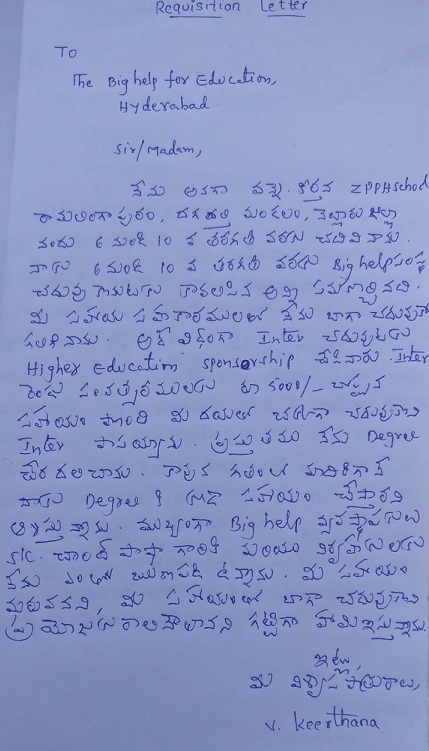 Requisition Letter
To
The Big help for Education,
Hyderabad.
Sir/Madam,
నేను అనగా వన్నె. కీర్తన ZPPHSchool
రామలింగాపురం, దగదర్తి మండలం, నెల్లూరు జిల్లా
నందు 6 నుండి 10 వ తరగతి వరకు చదివినాను.
నాకు 6 నుండి 10 వ తరగతి వరకు Big help సంస్థ
చదువు కొనుటకు కావలసిన అన్ని సమకూర్చినది.
మీ సహాయ సహకారములతో నేను బాగా చదువుకో
కలిగినాను. అదే విధంగా Inter చదువుటకు
Higher Education sponsorship చేసినారు. Inter
రెండు సంవత్సరములకు రూ 5000/- చొప్పున
సహాయం పొంది మీ దయతో చక్కగా చదువుకొని
Inter పాసయ్యాను. ప్రస్తుతము నేను Degree
చేరదలచాను. కావున గతంలో మాదిరిగానే
నాకు Degree కి కూడా సహాయం చేస్తారని
ఆశిస్తున్నాను. ముఖ్యంగా Big help వ్యవస్థాపకులు
చాంద్ పాషా గారికి మరియు నిర్వాహకులకు
నేను ఎంతో ఋణపడి ఉన్నాను. మీ సహాయం
మరువనని, మీ సహాయంతో బాగా చదువుకొని
ప్రయోజకురాలినౌతానని గట్టిగా హామి ఇస్తున్నాను.
ఇట్లు,
మీ విశ్వాస పాత్రురాలు,
V. Keerthana